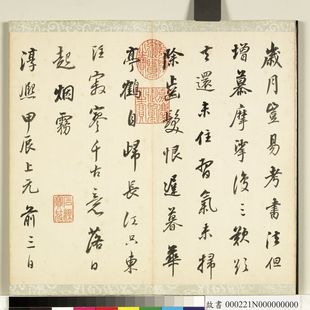 歲月豈易考書法但
增慕摩挲復三歎欲
去還未住習氣未掃
除齒髮恨遲暮華
亭鶴自歸長江只東
注寂寥千古意落日
起烟霧
淳熙甲辰上元前三日
故書 000221N000000000